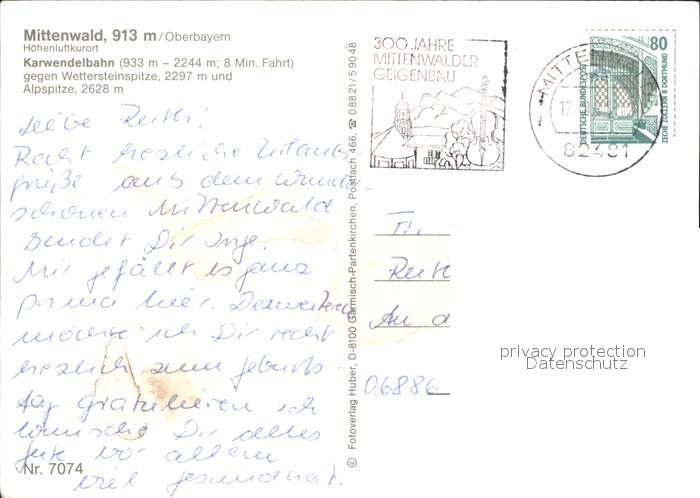 Mittenwald, 913 m/Oberbayern
Höhenluftkurort
Karwendelbahn (933 m – 2244 m; 8 Min. Fahrt)
gegen Wettersteinspitze, 2297 m und
Alpspitze, 2628 m
Liebe Ruth!
Recht herzliche Urlaubs
grüße aus dem wunder-
schönen Mittenwald
sendet Dir Inge.
Mir gefällt es ganz
prima hier. Desweiteren
möchte ich Dir recht
herzlich zum Geburts-
tag gratulieren ich
wünsche Dir alles
gute vor allem
viel gesundheit.
Nr. 7074
© Fotoverlag Huber, D-8100 Garmisch-Partenkirchen, Postfach 466, ☎ 08821/59048
300 JAHRE
MITTENWALDER
GEIGENBAU
MITTENWALD
17.
82481
80
DEUTSCHE BUNDESPOST
ZECHE ZOLLERN II DORTMUND
Fr.
Ruth
An d
06886
privacy protection
Datenschutz